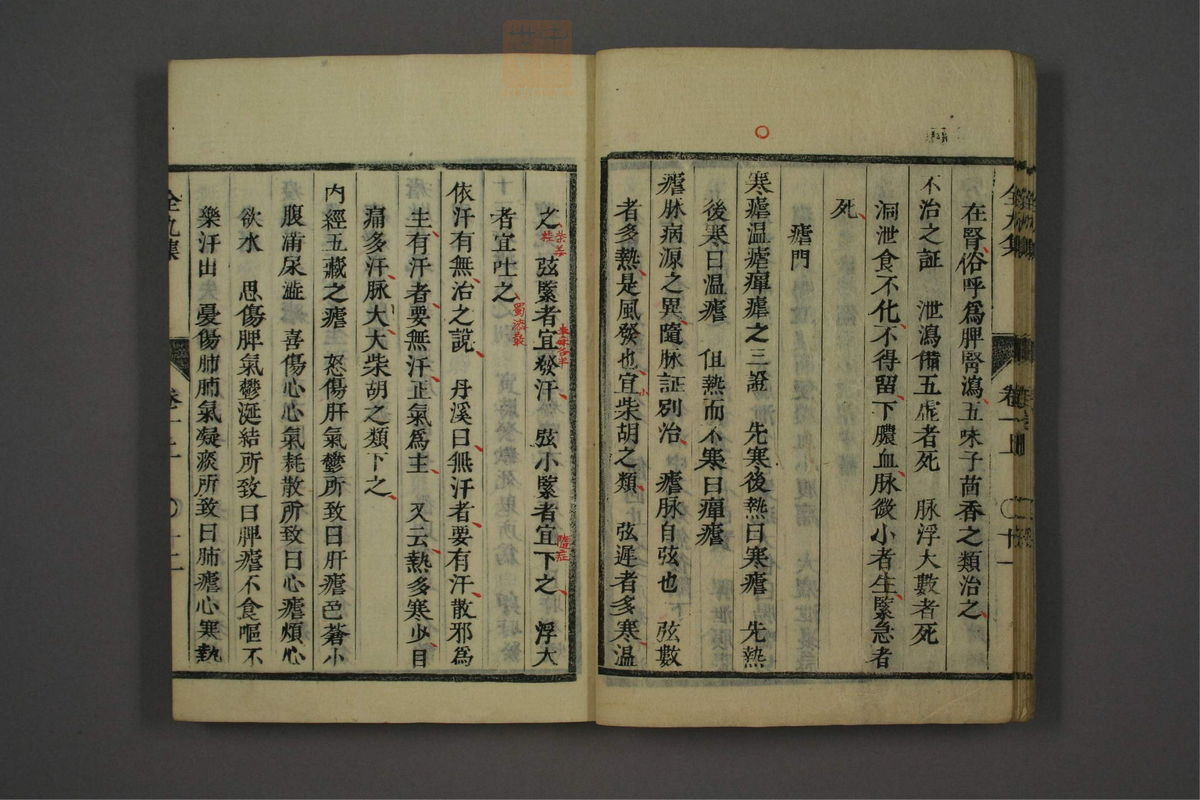 在腎俗呼爲脾腎瀉五味子茴香之類治之
不治之証　泄瀉備五虛者死　脉浮大數者死
洞泄食不化不得留下膿血脉微小者生緊急者
死
瘧門
寒瘧温瘧癉瘧之三證　先寒後熱曰寒瘧　先熱
後寒曰温瘧　但熱而不寒曰癉瘧
瘧脉病源之異隨脉証別治　瘧脉自弦也　弦數
者多熱是風發也宜柴胡之類　弦遲者多寒温
全九集
卷一上
十一
之　弦緊者宜發汗　弦小緊者宜下之　浮大
者宜吐之
蜀漆散
依汗有無治之説　丹溪曰無汗者要有汗散邪爲
生有汗者要無汗正氣爲主　又云熱多寒少目
痛多汗脉大大柴胡之類下之
内經五藏之瘧　怒傷肝氣鬱所致曰肝瘧色蒼小
腹滿尿澁　喜傷心心氣耗散所致曰心瘧煩心
欲水　思傷脾氣鬱涎結所致曰脾瘧不食嘔不
樂汗出　憂傷肺肺氣凝痰所致曰肺瘧心寒熱
全九集
十二